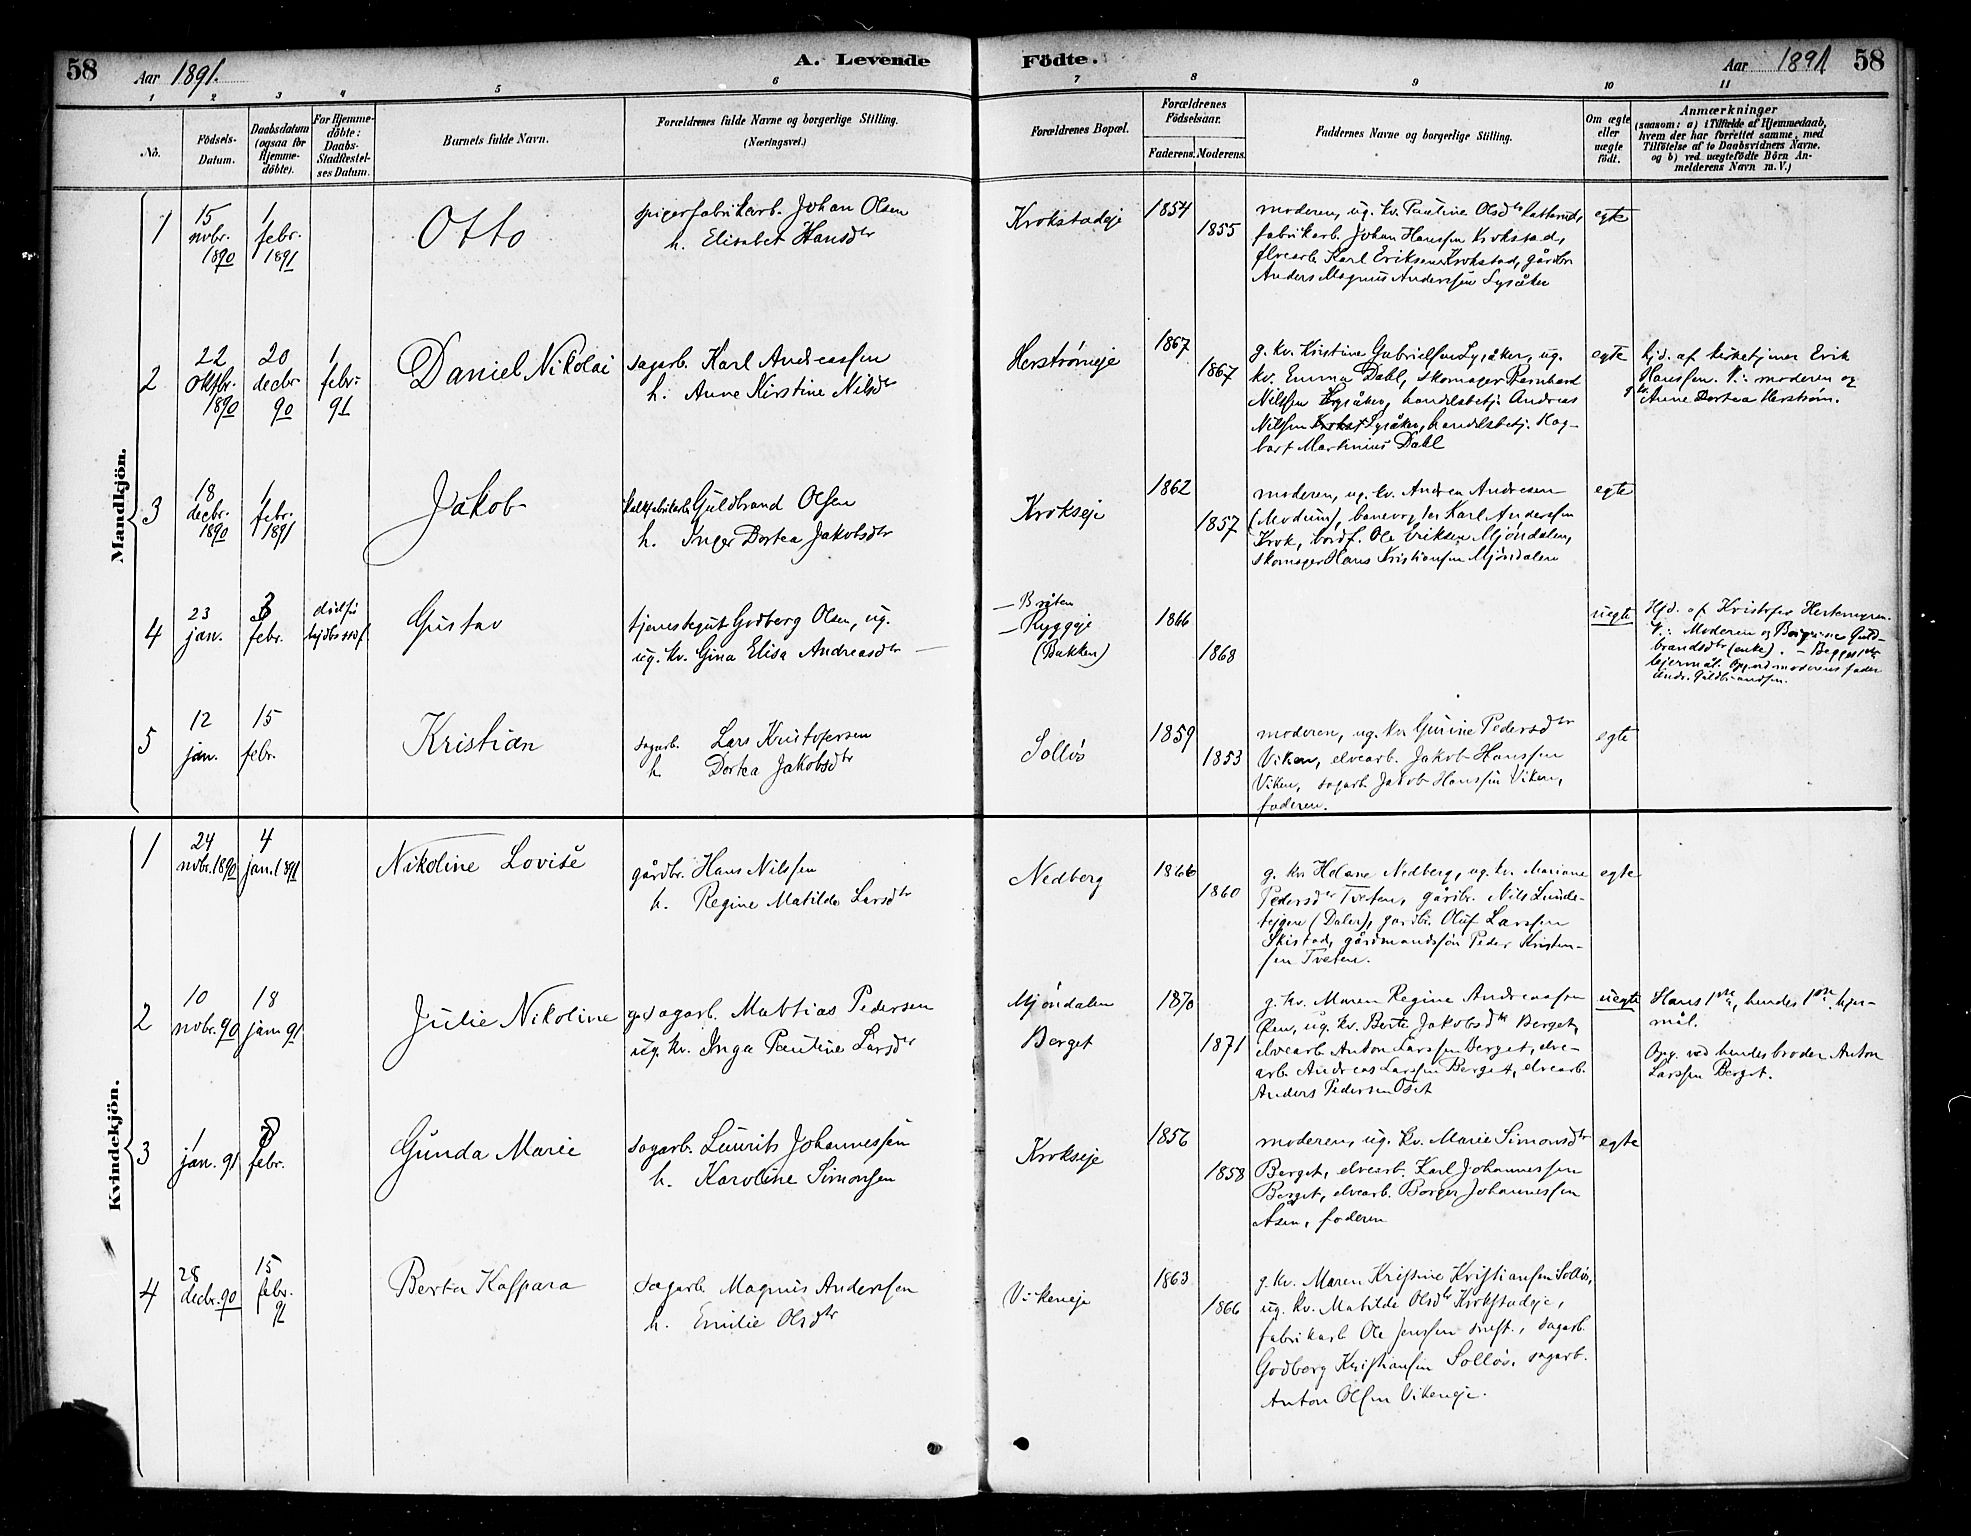 58
Aar 1891.
A. Levende
Födte.
Aar 1891
58
1 2 3 4 5 6 7 8 9 10 11
No.
Födsels-
Datum.
Daabsdatum
(ogsaa for
Hjemme-
döbte).
For Hjemme-
döbte:
Daabs-
Stadfestel-
ses Datum.
Barnets fulde Navn.
Forældrenes fulde Navne og borgerlige Stilling.
(Næringsvei.)
Forældrenes Bopæl.
Forældrenes
Födselsaar.
Faderens. Moderens.
Faddernes Navne og borgerlige Stilling.
Om ægte
eller
uægte
födt.
Anmærkninger
(saasom: a) i Tilfælde af Hjemmedaab,
hvem der har forrettet samme, med
Tilföielse af to Daabsvidners Navne.
og b) ved uægtefödte Börn An-
melderens Navn m. V.)
Mandkjön.
1
15
novbr.
1890
1
febr.
1891
Otto
spigerfabrikarb. Johan Olsen
h. Elisabet Hansdtr
Krokstadeje
1854
1855
moderen, ug. kv. Pautine Olsdtr
fabrikarb. Johan Hanssen Krokstad,
Elvearb. Karl Eriksen Krokstad, gårdbr
Anders Magnus Anderssen Lysåker
egte
2
22
oktbr.
1890
20
decbr.
90
1
febr.
91
Daniel Nikolai
sagarb. Karl Andreassen
h. Anne Kirstine Nilsdtr
Herstrømeje
1867
1867
g. kv. Kristine Gabrielsen Lysåker, ug.
kv. Emma Dahl, skomager Bernhard
Nilssen Lysåker, handelsbetj. Andreas
Nilssen Lysåker, handelsbetj. Hag-
bart Martinius Dahl
egte
hjd. af kirketjener Erik
Hanssen. V.: moderen og
Anne Dortea Herstrøm.
3
18
decbr.
1890
1
febr.
1891
Jakob
Guldbrand Olsen
h. Inger Dortea Jakobsdtr
Krokseje
1862
1857
moderen, ug. kv. Andrea Andresen
(Modum), banevogter Karl Anderssen
Krok, bordf. Ole Eriksen Mjøndalen,
skomager Hans Kristiansen Mjøndalen
egte
4
23
jan.
3
febr.
Gustav
tjenestegut Godberg Olsen, ug.
ug. kv. Gina Elisa Andreasdtr —
— Bråten
— Ryggeje
(Bakken)
1866
1868
uegte
Hjd. af Kristofer
V.: Moderen og Guld-
brandsdtr (enke). — Begges 1ste
lejermål. Opg. ved moderens fader
Andr. Guldbrandsen.
5
12
jan.
15
febr.
Kristian
sagarb. Lars Kristofersen
h. Dortea Jakobsdtr
Solløs
1859
1853
moderen, ug. kv Gurine Pedersdtr
Viken, elvearb. Jakob Hanssen
Viken, sagarb Jakob Hanssen Viken,
faderen.
egte
Kvindekjön.
1
24
novbr. 1890
4
jan. 1891
Nikoline Lovise
gårdbr. Hans Nilssen
h. Regine Matilde Larsdtr
Nedberg
1866
1860
g. kv Helene Nedberg, ug. kv. Mariane
Pedersdtr Tveten, gårdbr. Nils Lunde-
tejgen (Dalen), gårdbr. Oluf Larssen
Skistad, gårdmandssøn Peder Kristen-
sen Tveten.
egte
2
10
novbr. 90
18
jan 91
Julie Nikoline
g. sagarb. Mattias Pedersen
ug. kv. Inga Pauline Larsdtr
Mjøndalen
Berget
1870
1871
g. kv. Maren Regine Andreassen
Øen, ug. kv. Berte Jakobsdtr Berget,
elvearb Anton Larssen Berget, elve-
arb. Andreas Larssen Berget, elvearb.
Anders Pedersen Oset
uegte
Hans 1ste, hendes 1ste lejer-
mål.
Opg. ved hendes broder Anton
Larssen Berget.
3
1
jan. 91
febr.
Gunda Marie
sagarb. Laurits Johannessen
h. Karoline Simonsen
Krokseje
1856
1858
moderen, ug. kv. Marie Simonsdtr
Berget, elvearb. Karl Johannessen
Berget, elvearb. Borger Johannessen
Åsen, faderen
egte
4
28
decbr. 90
15
febr.
91
Berta Kaspara
sagarb Magnus Anderssen
h. Emilie Olsdtr
Vikeneje
1863
1866
g. kv. Maren Kristine Kristiansen Solløs,
ug. kv. Matilde Olsdtr Krokstadeje,
fabrikarb Ole Jenssen smst., sagarb.
Godberg Kristiansen Solløs, sagarb.
Anton Olssen Vikeneje.